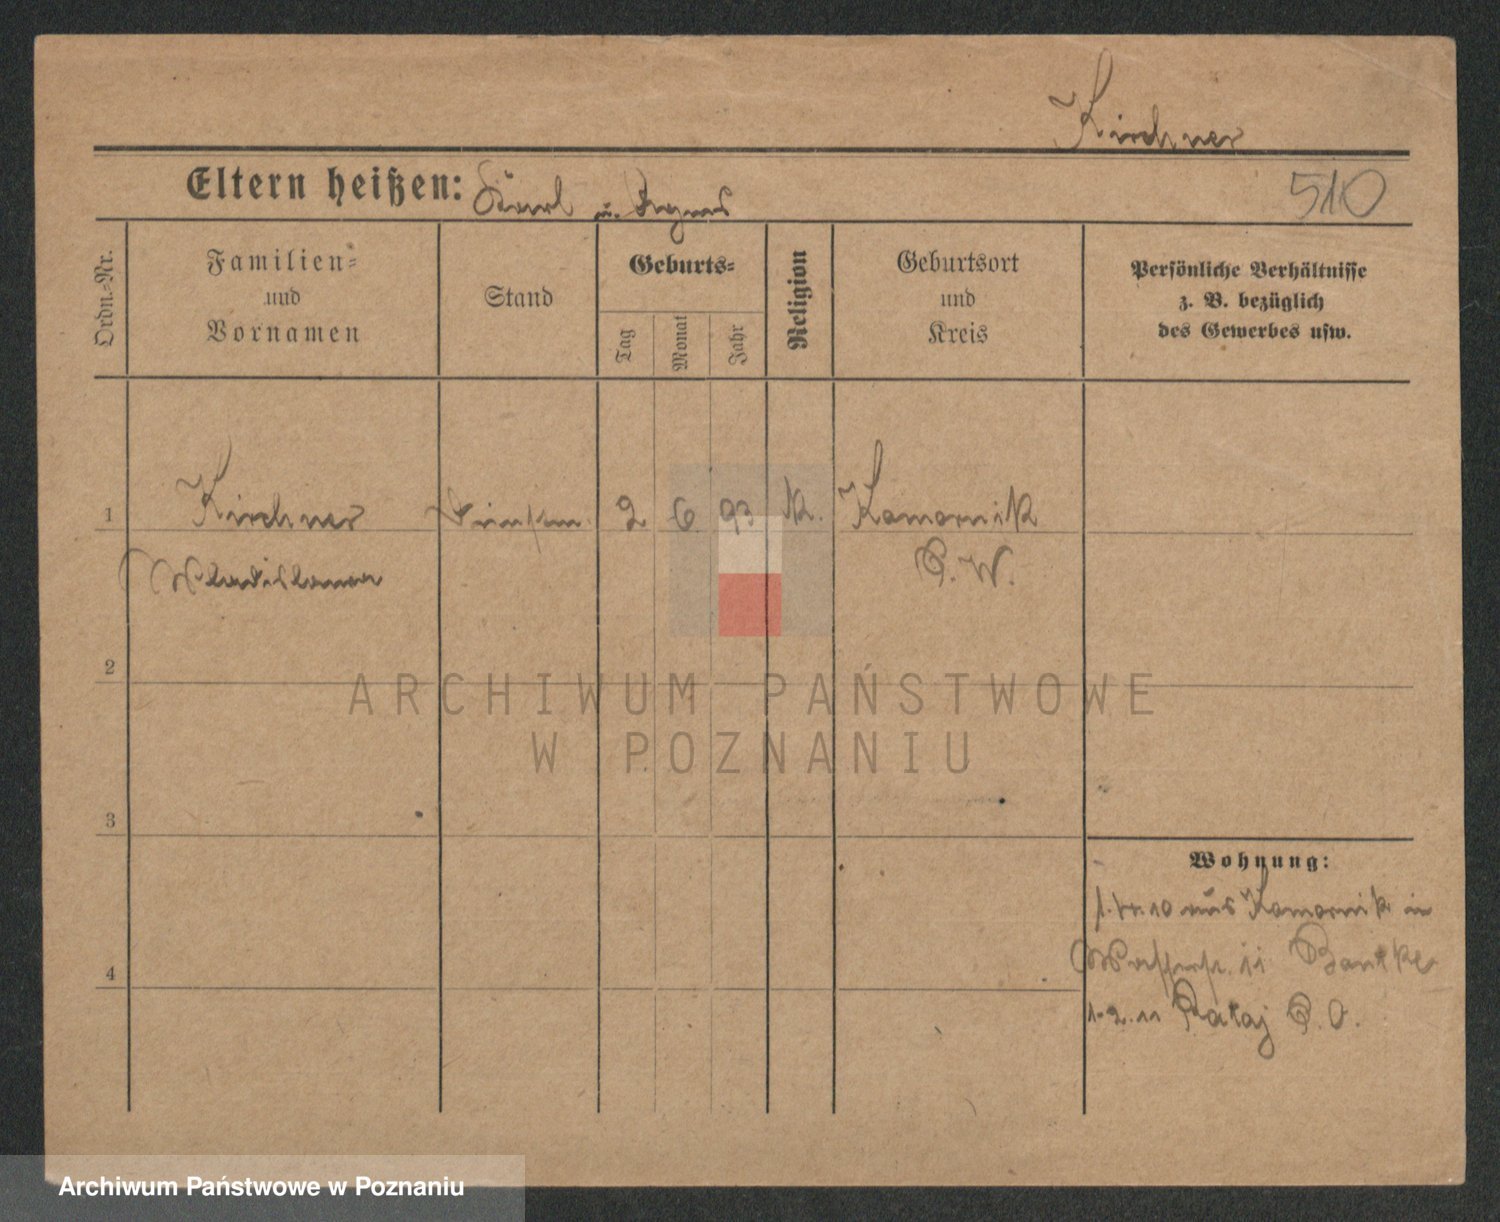 Kirchner
Eltern heißen: Karl u. Agnes
510
Ordn.-Nr.
Familien-
und
Vornamen
Stand
Geburts-
Tag
Monat
Jahr
Religion
Geburtsort
und
Kreis
Persönliche Verhältnisse
z. B. bezüglich
des Gewerbes usw.
1
Kirchner
2 6 93
K.
Komornik
P. W.
Wladislawa
2
ARCHIWUM PAŃSTWOWE
W POZNANIU
3
Wohnung:
1.4.10 aus Komornik in
11
1.2.11 Rataj P. O.
4
Archiwum Państwowe w Poznaniu